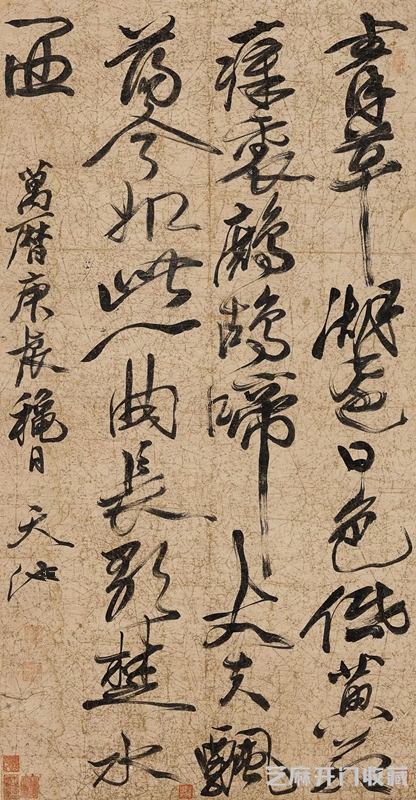 青草湖邊日色低黃茅
瘴裏鷓鴣啼丈夫飄
蕩今如此一曲長歌楚水
西
萬曆庚辰穐日 天池
芝麻开门收藏